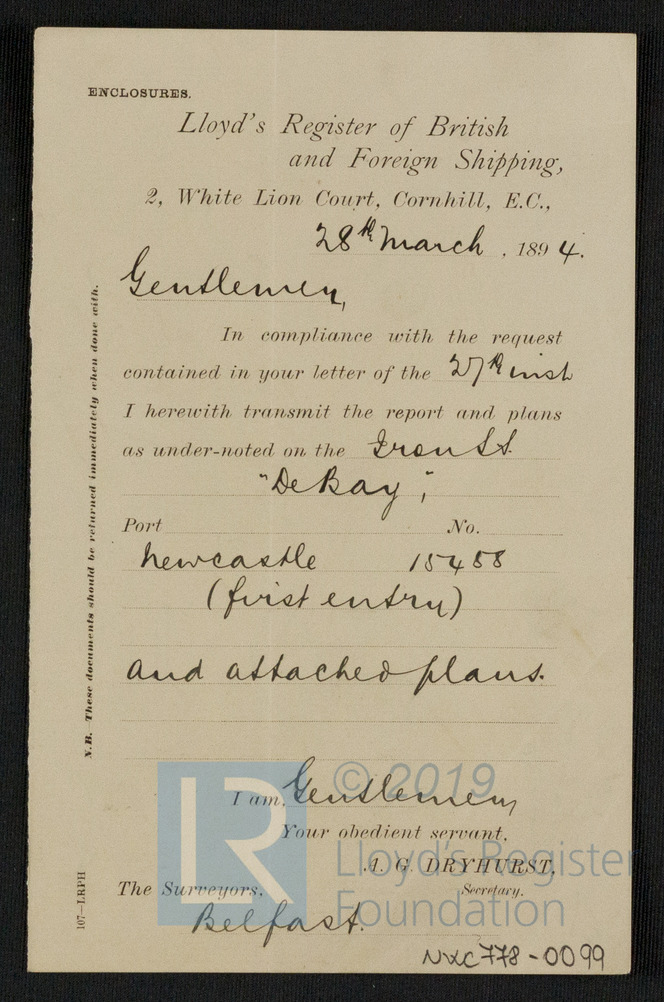 ENCLOSURES.
Lloyd's Register of British
and Foreign Shipping,
2, White Lion Court, Cornhill, E.C.,
28th March, 1894.
Gentlemen,
In compliance with the request
contained in your letter of the 27th inst
I herewith transmit the report and plans
as under-noted on the Iron S.S.
"De Bay",
Port No.
Newcastle 15488
(first entry)
and attached plans.
I am, Gentlemen,
Your obedient servant,
A. G. DRYHURST,
Secretary.
The Surveyors,
Belfast.
N.B. These documents should be returned immediately when done with.
107—LRPH
LR
© 2019
Lloyd's Register
Foundation
NXC778-0099